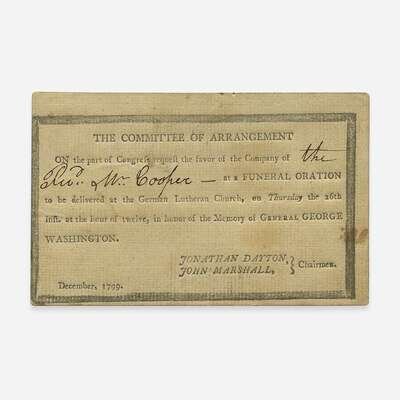 THE COMMITTEE OF ARRANGEMENT
ON the part of Congreſs requeſt the favor of the Company of the
Revd. Mr. Cooper — at a FUNERAL ORATION
to be delivered at the German Lutheran Church, on Thurſday the 26th
inſt. at the hour of twelve, in honor of the Memory of GENERAL GEORGE
WASHINGTON.
JONATHAN DAYTON,
JOHN MARSHALL, } Chairmen.
December, 1799.